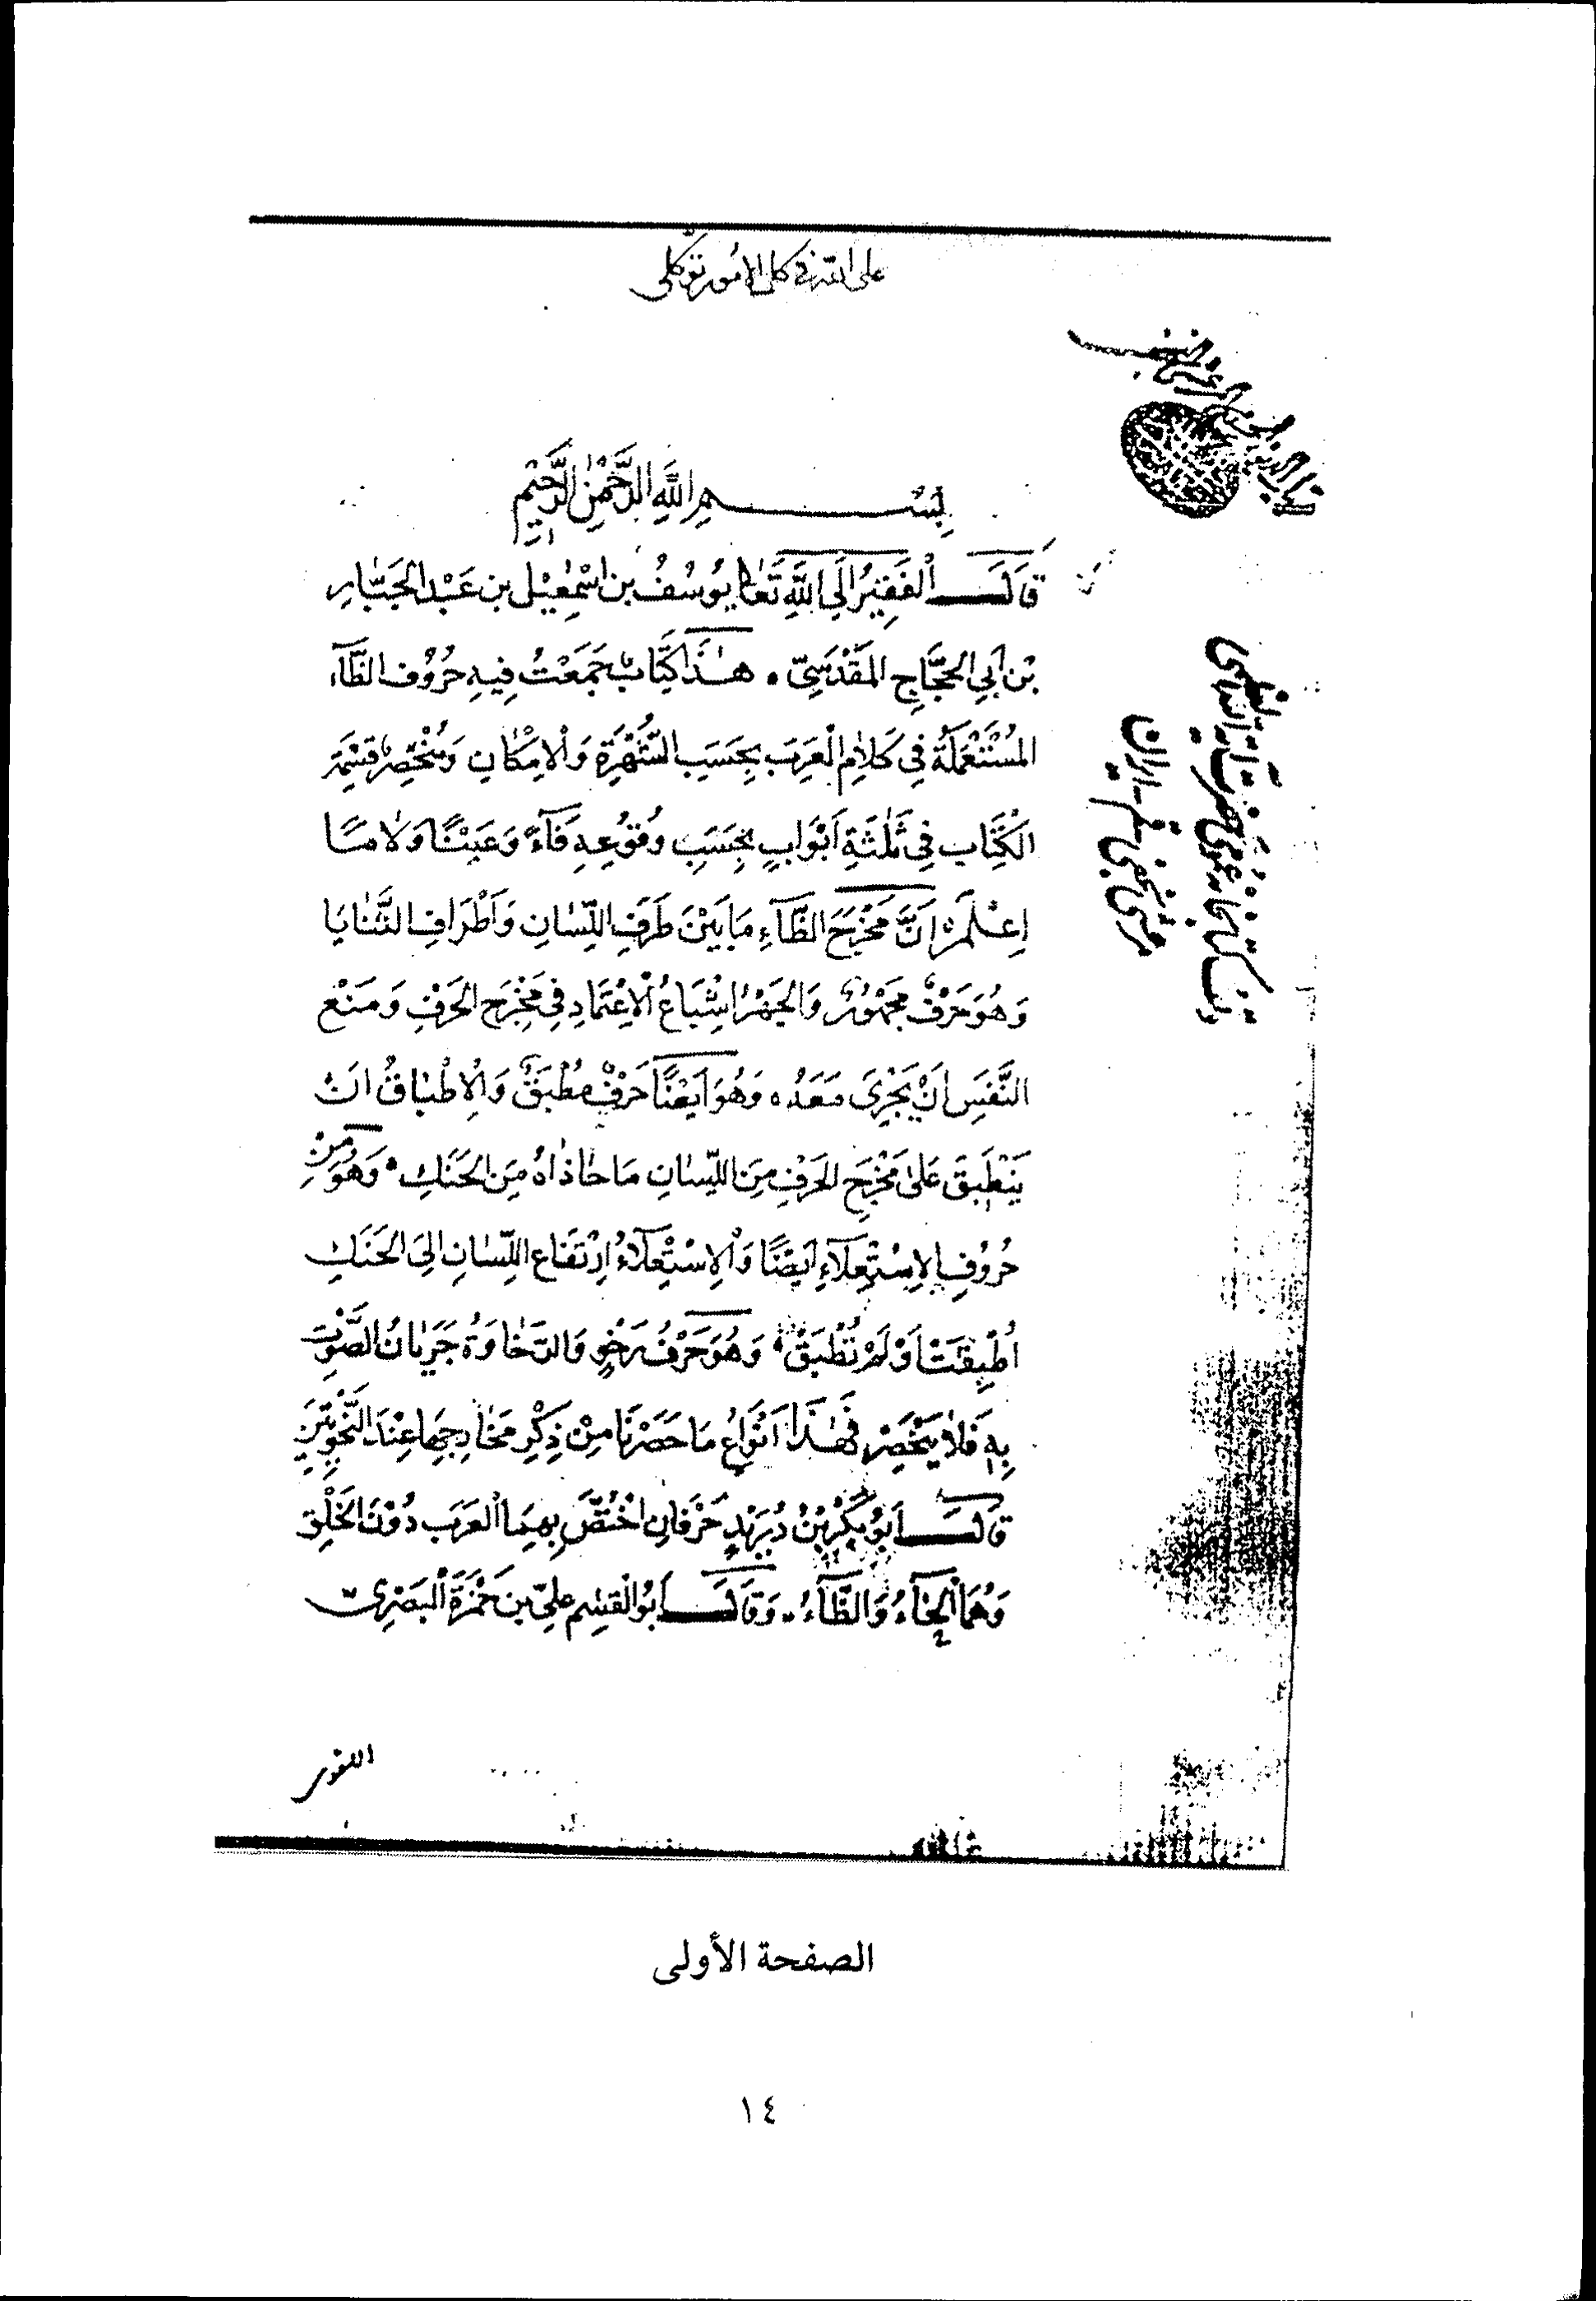 على الله في كل الامور توكلي
بِسْمِ اللهِ الرَّحْمٰنِ الرَّحِيْمِ
قَالَ الْفَقِيْرُ اِلَى اللهِ تَعَالٰى يُوسُفُ بن اسْمٰعِيْل بن عَبْدِ الجَبَّارِ
بْنِ اَبِي الحَجَّاجِ المَقْدَسِيّ • هٰذَا كِتَابٌ جَمَعْتُ فِيهِ حُرُوْف الظَّآءِ
المُسْتَعْمَلَة فِي كَلَامِ الْعَرَبِ بِحَسَبِ الشُّهْرَةِ وَالْاِمْكَانِ وَتَنْحَصِرُ قِسْمَة
الكِتَاب فِي ثَلٰثَةِ اَبْوَابٍ بِحَسَبِ وُقُوْعِهِ فَآءً وَعَيْنًا وَلَامًا
اِعْلَمْ اَنَّ مَخْرَجَ الظَّآءِ مَا بَيْنَ طَرَفِ اللِّسَانِ وَاَطْرَافِ الثَّنَايَا
وَهُوَ حَرْفٌ مَجْهُوْرٌ وَالجَهْرُ اِشْبَاعُ الْاِعْتِمَادِ فِي مَخْرَجِ الحَرْفِ وَمَنْع
النَّفَسِ اَنْ يَجْرِيَ مَعَهُ وَهُوَ اَيْضًا حَرْفٌ مُطْبَقٌ وَالْاِطْبَاقُ انْ
يَنْطَبِقَ عَلٰى مَخْرَجِ الحَرْفِ مِنَ اللِّسَانِ مَا حَاذَاهُ مِنَ الحَنَكِ • وَهُوَ مِنْ
حُرُوْفِ الاِسْتِعْلَآءِ اَيْضًا وَالْاِسْتِعْلَآءُ اِرْتِفَاع اللِّسَانِ اِلَى الحَنَكِ
اُطْبِقَتْ اَوْ لَمْ تُطْبَقْ • وَهُوَ حَرْفٌ رَخْوٌ وَالرَّخَاوَةُ جَرَيَانُ الصَّوْتِ
بِهِ فَلَا يَنْحَصِرُ فَهٰذَا اَنْوَاعُ مَا حَصَرْنَا مِنْ ذِكْرِ مَخَارِجِهَا عِنْدَ النَّحْوِيِّيْنَ
قَالَ اَبُو بَكْرِ بْنُ دُرَيْدٍ حَرْفَانِ اخْتُصَّ بِهِمَا الْعَرَب دُوْنَ الخَلْقِ
وَهُمَا الْحَآءُ وَالظَّآءُ • وَقَالَ اَبُو الْقٰسِم عَلِيّ بن حَمْزَةَ الْبَصْرِيّ
اللغوي
وقف كتابخانه عمومى حضرت آية الله العظمى
مرعشى نجفى - قم - ايران
الصفحة الأولى
١٤